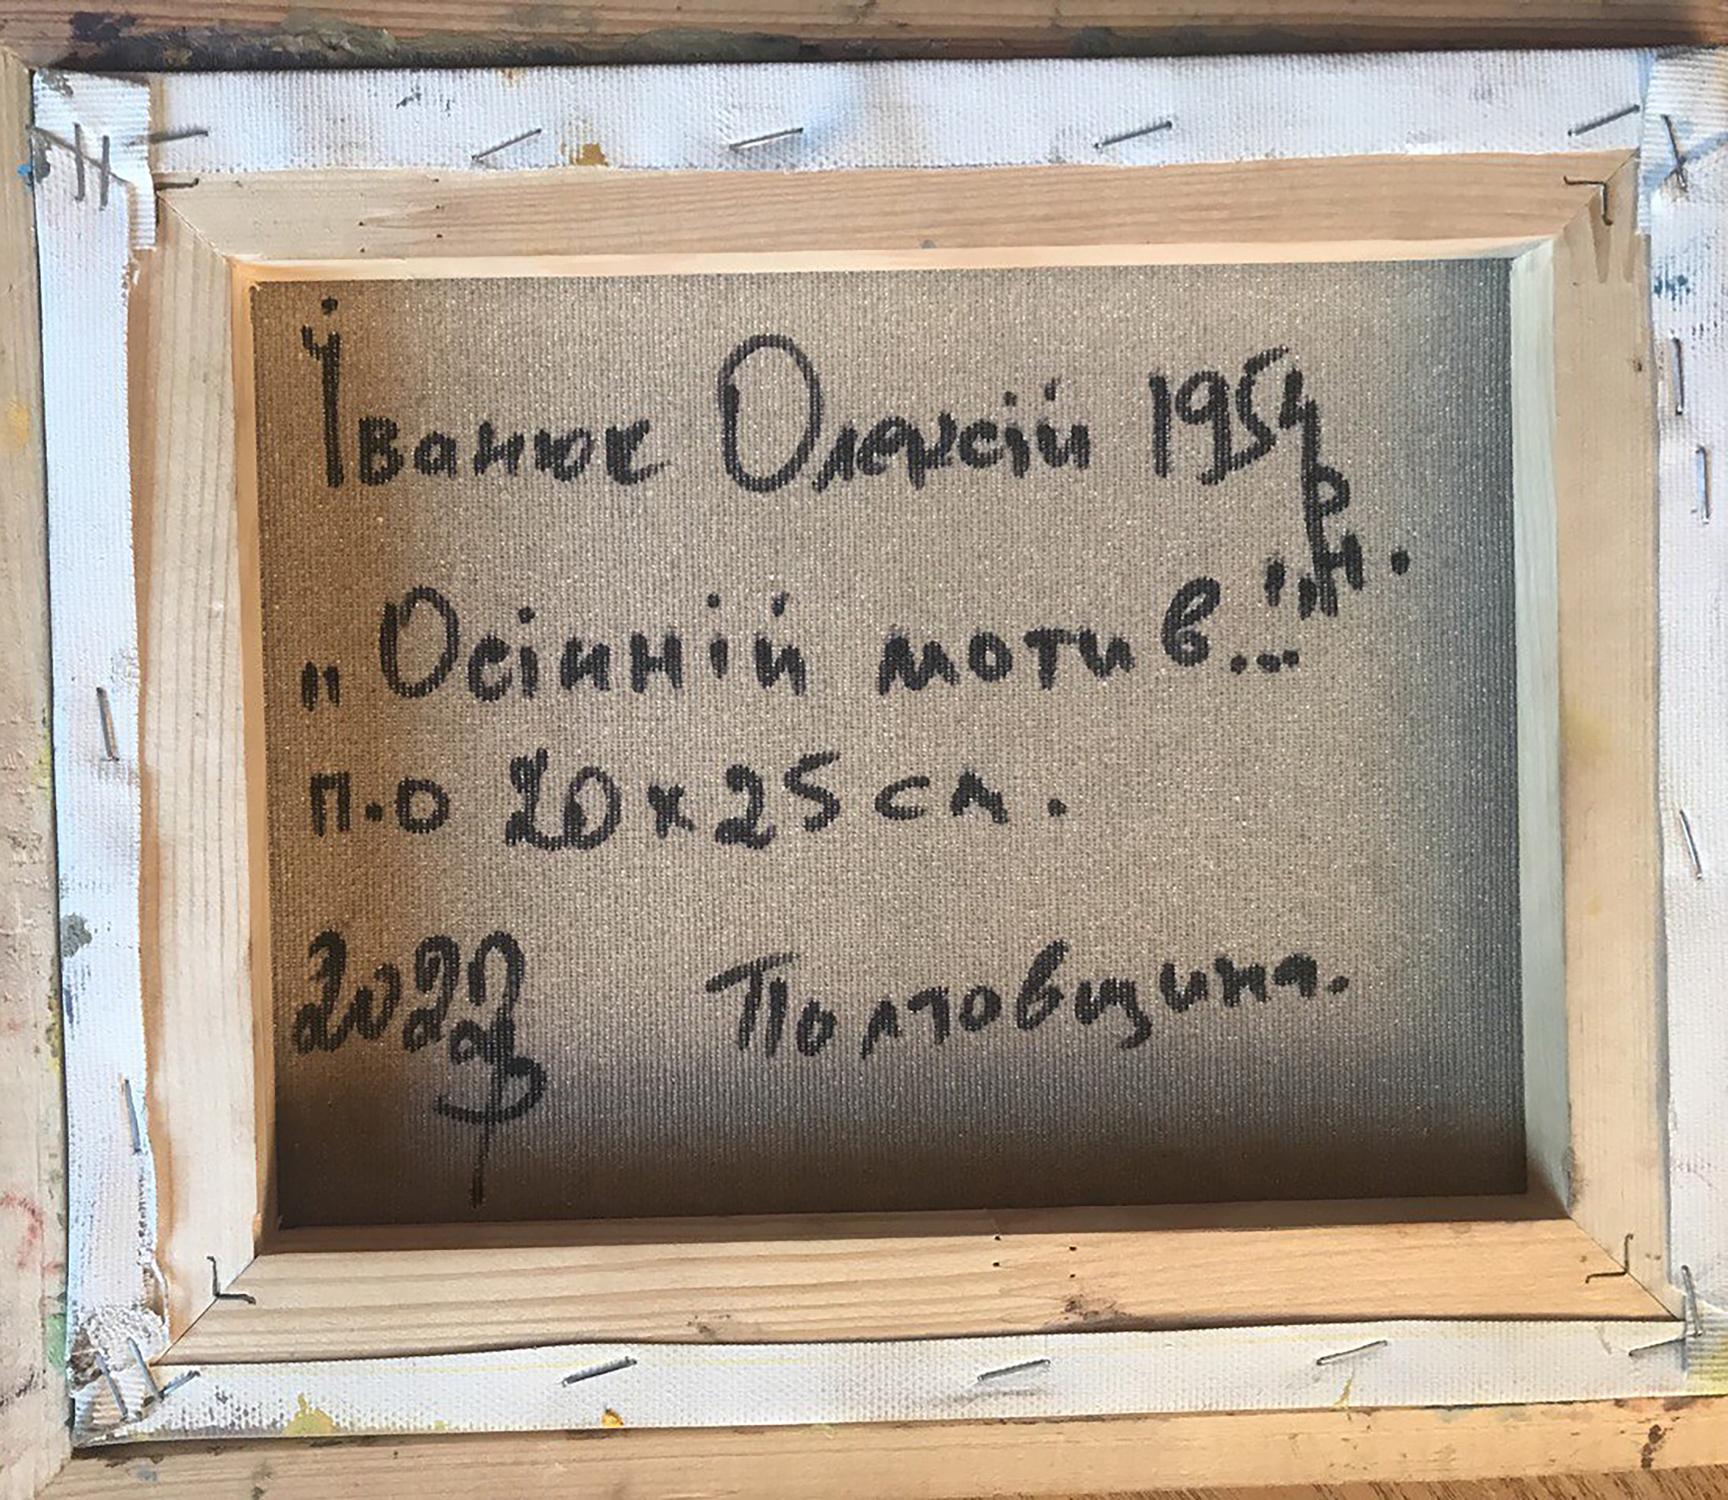 Іванюк Олексій 1954 р.н.
„Осінній мотив..."
п.о 20х25 см.
2022р Полтовщина.